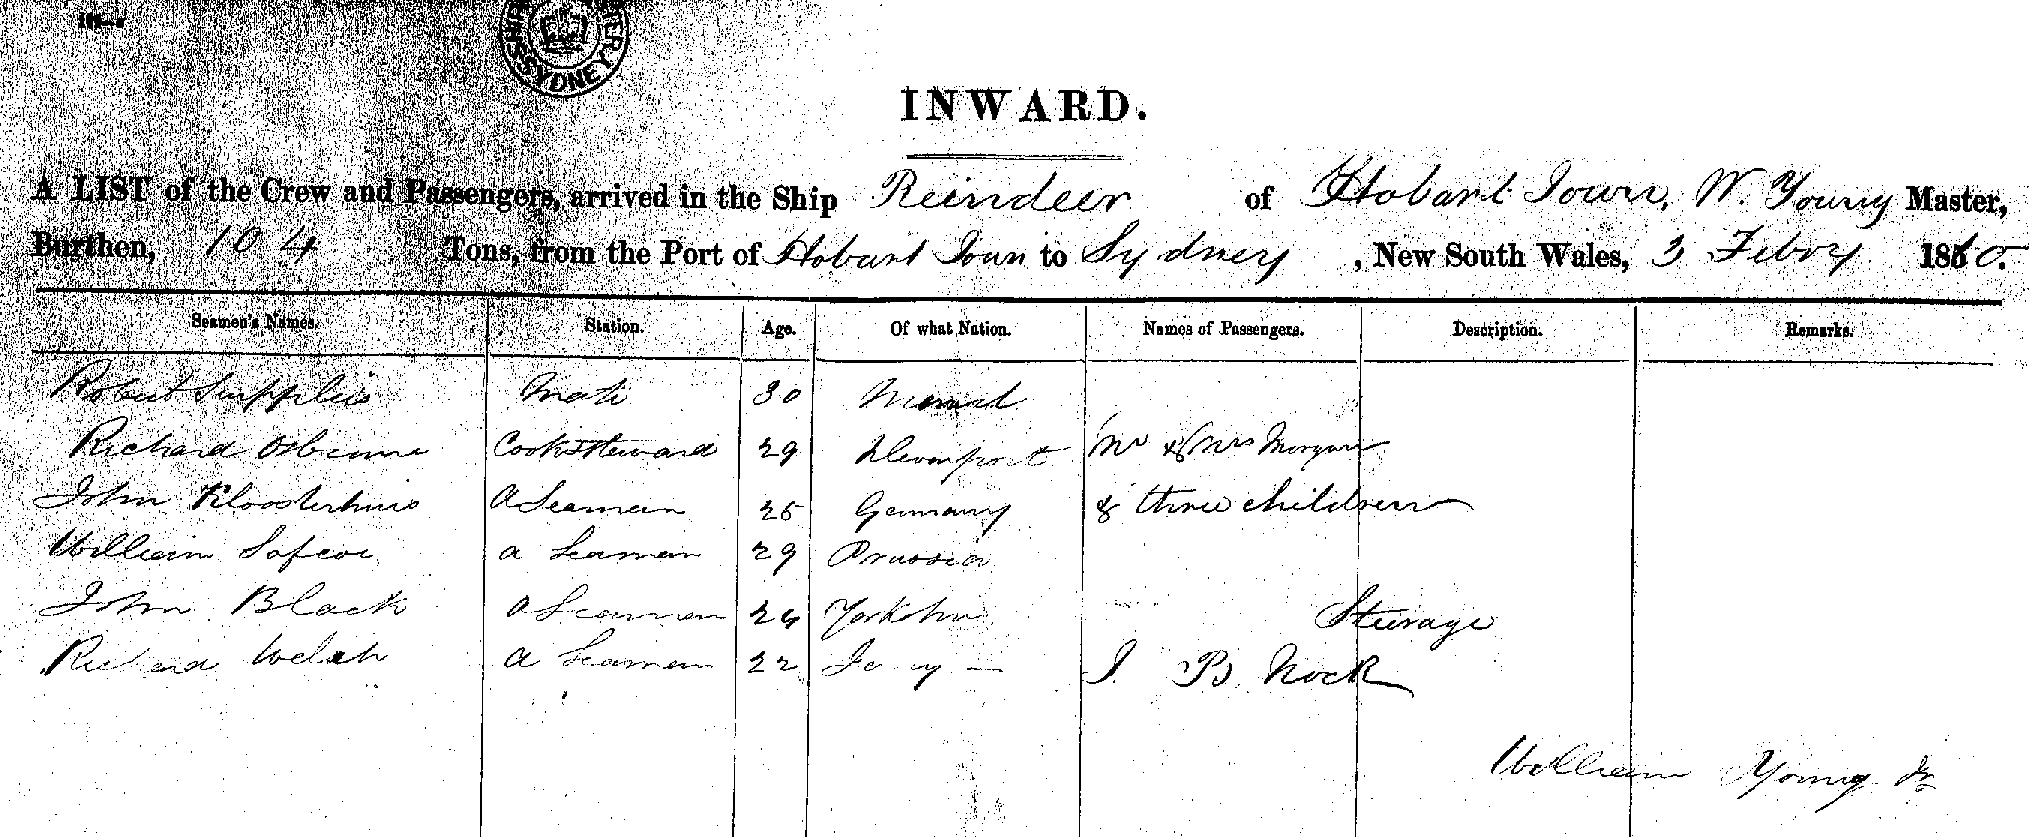 SYDNEY
INWARD.
A LIST of the Crew and Passengers, arrived in the Ship Reindeer of Hobart Town, W. Young Master,
Burthen, 104 Tons, from the Port of Hobart Town to Sydney, New South Wales, 3 Febry 1860.
Seamen's Names. Station. Age. Of what Nation. Names of Passengers. Description. Remarks.
Robert Mate 30
Richard Osborne Cook & Steward 29 Devonport Mr & Mrs Morgan
John Kloosterhuis A Seaman 25 Germany & three children
William A Seaman 29 Prussia
John Black A Seaman 24 Yorkshire Steerage
Richard Welch A Seaman 22 J. B. Nock
William Young